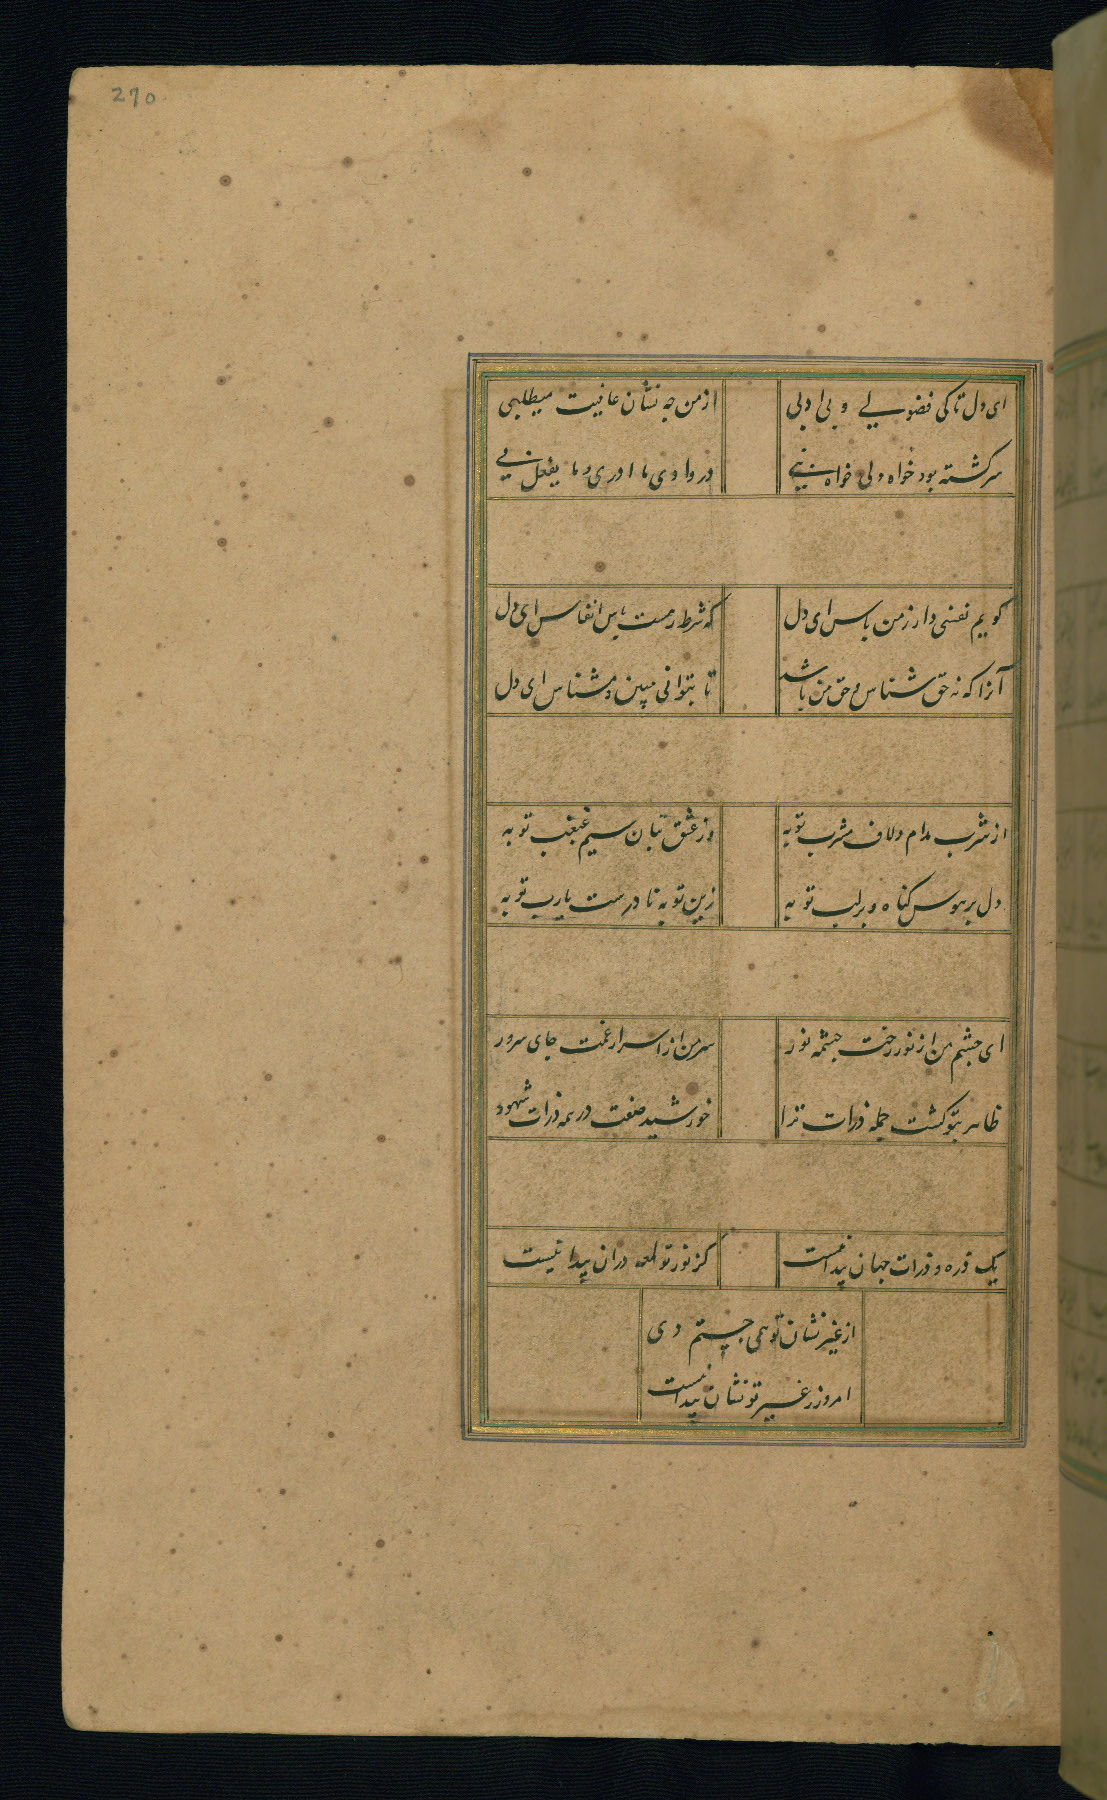 270
ای دل تا کی فضولی و بی ادبی از من چه نشان عافیت میطلبی
سرکشته بود خواه ولی خواه نبی در وادی ما ادری و ما یفعل بی
کویم نفسی دار ز من پاس ای دل که شرط رهست پاس انفاس ای دل
آنرا که نه حق شناس و حق بین باشد تا بتوانی مبین و مشناس ای دل
از شرب مدام و لاف مشرب توبه وز عشق بتان سیم غبغب توبه
دل بر هوس کناه و بر لب توبه زین توبه نا درست یارب توبه
ای چشم من از نور رخت چشمه نور سر من از اسرار غمت جای سرور
ظاهر بتو کشت جمله ذرات ترا خورشید صفت در همه ذرات شهود
یک ذره و ذرات جهان پیدا نیست کز نور تو لمعه دران پیدا نیست
از غیر نشان تو همی جستم دی
امروز ز غیر تو نشان پیدا نیست